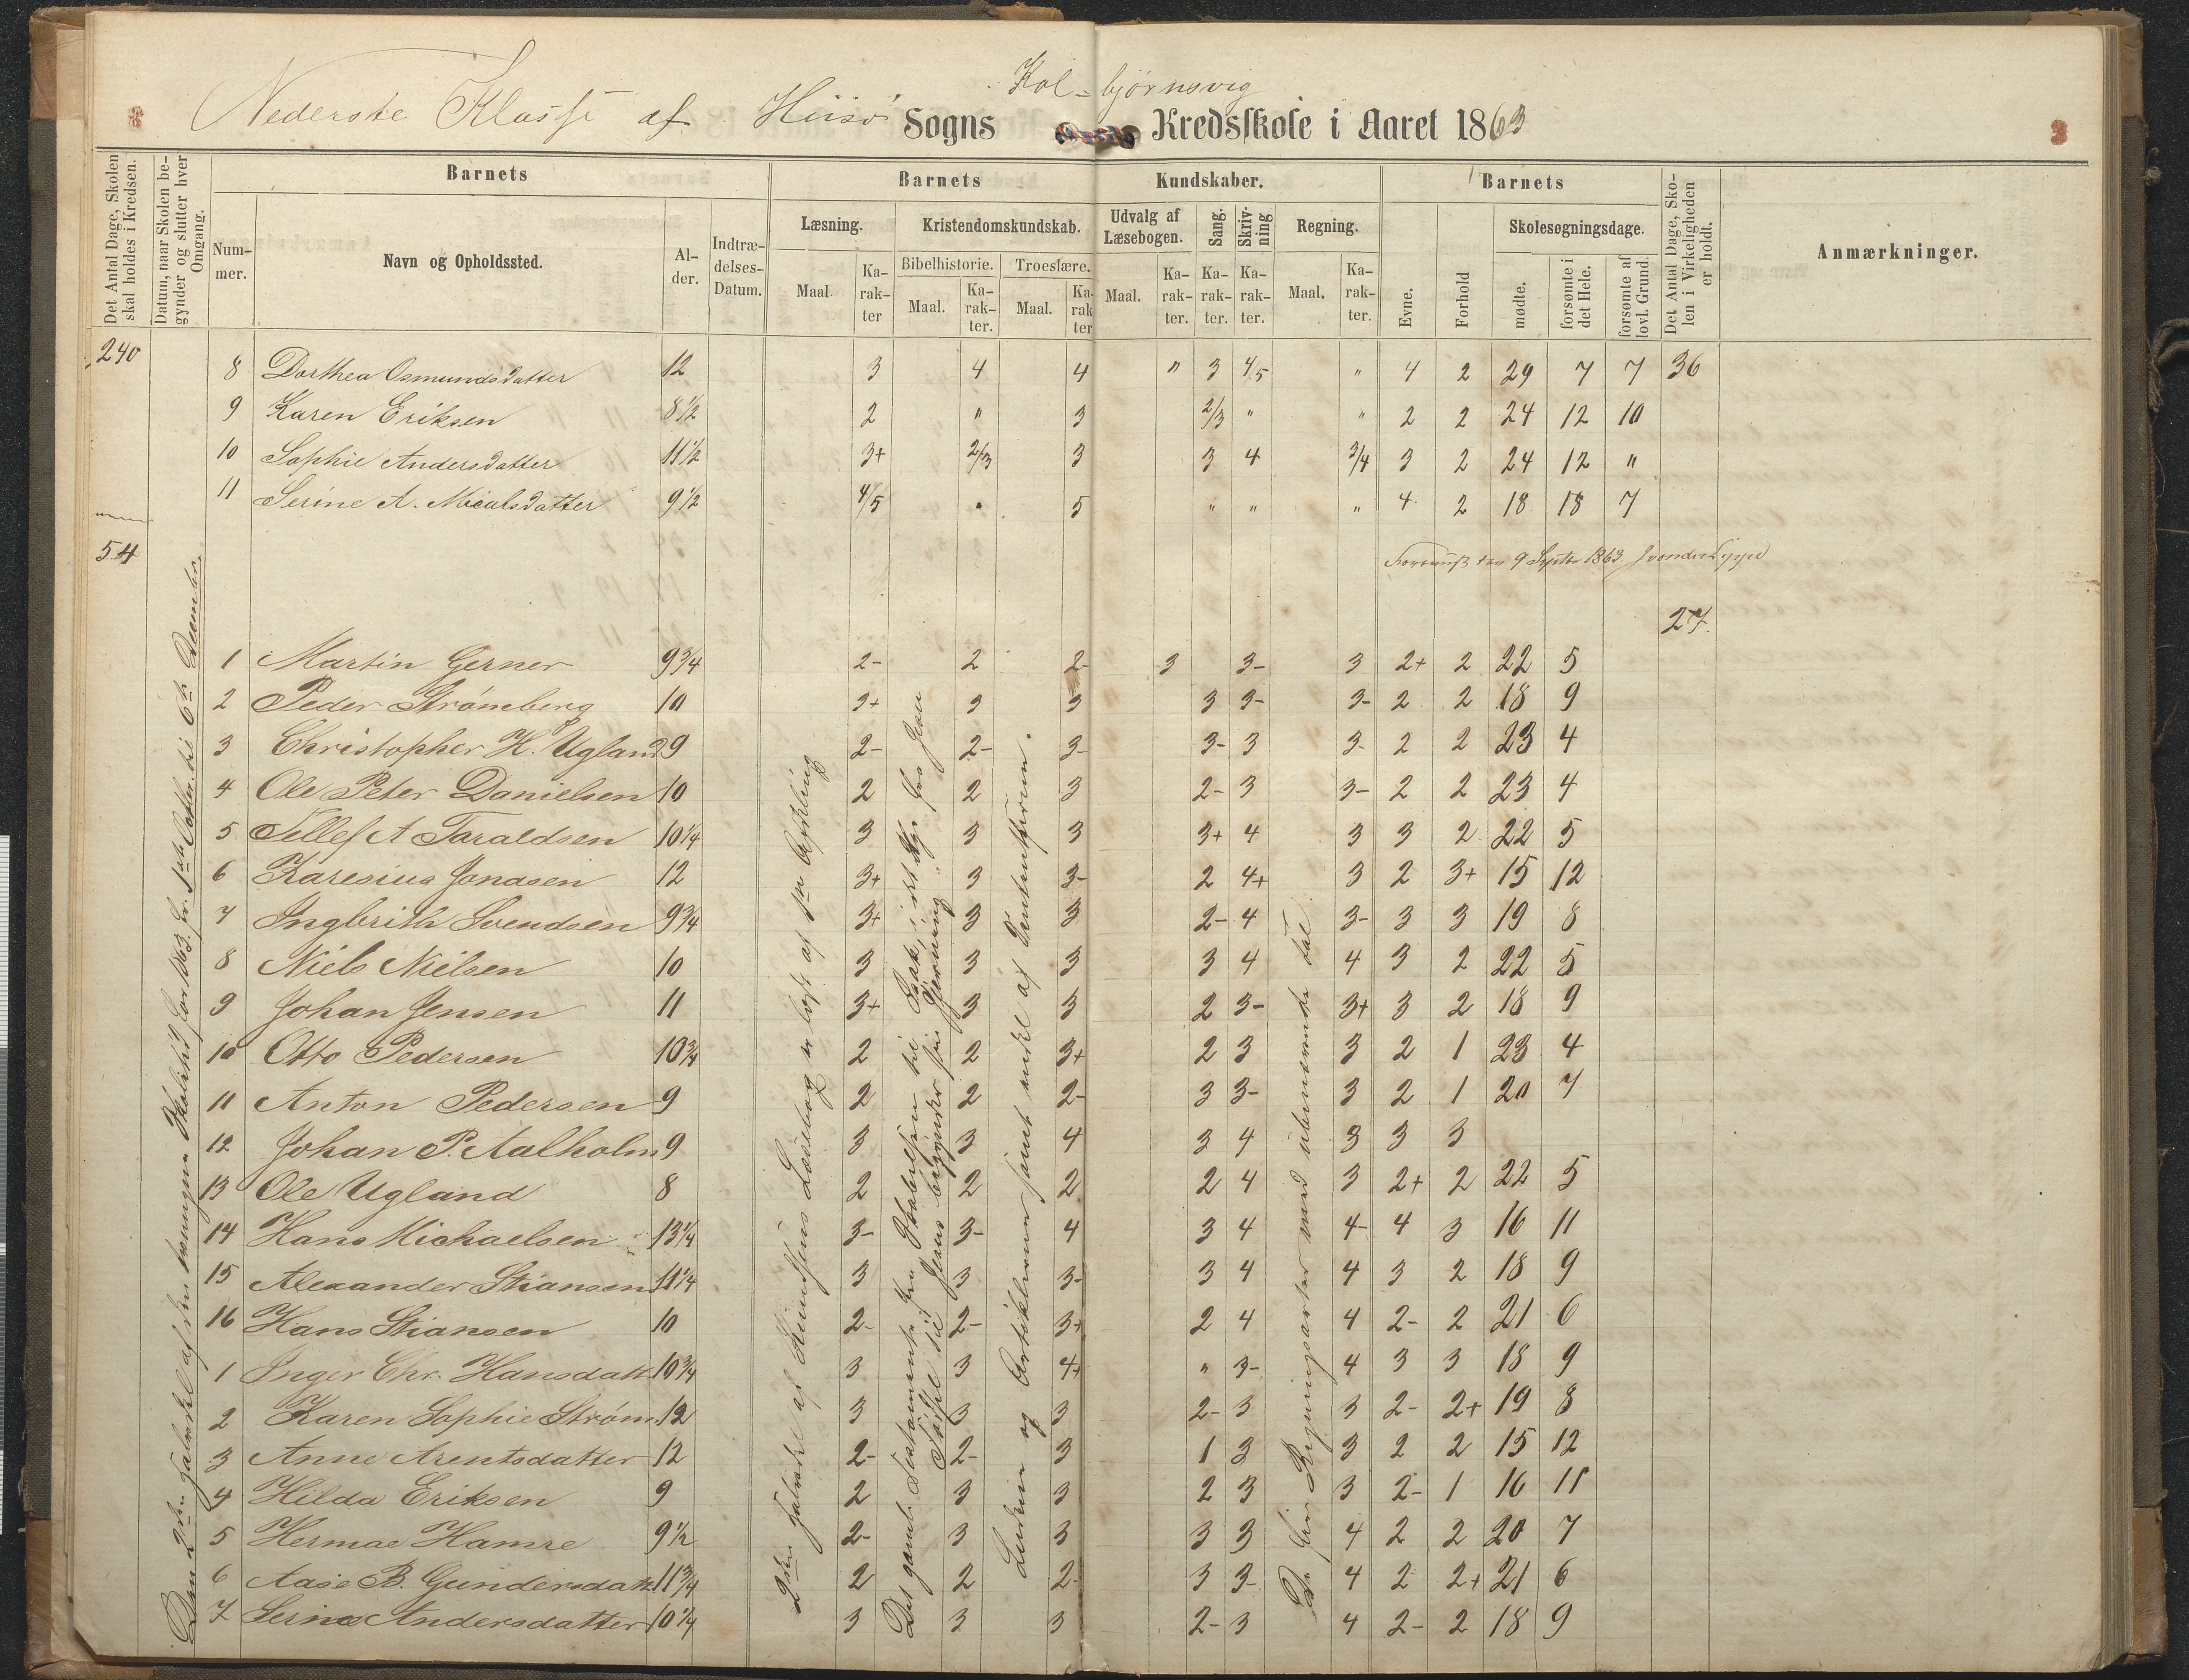 Kol-bjørnsvig
Nederste Klasse af Hiisø Sogns Kredsskole i Aaret 1863
3 3
Det Antal Dage, Skolen skal holdes i Kredsen.
Datum, naar Skolen begynder og slutter hver Omgang.
Barnets Barnets Kundskaber. Barnets
Det Antal Dage, Skolen i Virkeligheden er holdt.
Anmærkninger.
Nummer. Navn og Opholdssted. Alder. Indtrædelses-Datum.
Læsning. Kristendomskundskab. Udvalg af Læsebogen. Sang. Skrivning Regning. Evne. Forhold Skolesøgningsdage.
Bibelhistorie. Troeslære.
Maal. Karakter Maal. Karakter. Maal. Karakter Maal. Karakter. Karakter. Karakter. Maal. Karakter. mødte. forsømte i det Hele. forsømte af lovl. Grund.
240 8 Dorthea Osmundsdatter 12 3 4 4 " 3 4/5 " 4 2 29 7 7 36
9 Karen Eriksen 8 1/2 2 " 3 2/3 " " 2 2 24 12 10
10 Sophie Andersdatter 11 1/2 3+ 2/3 3 3 4 3/4 3 2 24 12 "
11 Serine A. Micalsdatter 9 1/2 4/5 " 5 " " " 4 2 18 18 7
54
den 9 Septbr 1863 J vonder Lippe
27.
1 Martin Gerner 9 3/4 2- 2 2- 3 3- 3 2+ 2 22 5
2 Peder Strømberg 10 3+ 3 3 3 3- 3- 2 2 18 9
3 Christopher H. Ugland 9 2- 2- 3- 3- 3 3- 2 2 23 4
4 Ole Peter Danielsen 10 2 2 3 2- 3 3- 2 2 23 4
5 Tellef A Taraldsen 10 1/4 3 3 3 3+ 4 3 3 2 22 5
6 Karesius Jonasen 12 3+ 3 3- 2 4+ 3 2 3+ 15 12
7 Ingbrith Svendsen 9 3/4 3+ 3 3 2- 4 3- 3 3 19 8
8 Niels Nielsen 10 3 3 3 3 4 4 3 2 22 5
9 Johan Jensen 11 3+ 3 3 2 3- 3+ 3 2 18 9
10 Otto Pedersen 10 3/4 2 2 3+ 2 3 3 2 1 23 4
11 Anton Pedersen 9 2 2 2- 3 3- 3 2 1 20 7
12 Johan P. Aalholm 9 3 3 4 3 4 3 3 3
13 Ole Ugland 8 2 2 2 2 4 3 2+ 2 22 5
14 Hans Michaelsen 13 1/4 3- 3- 4 3 4 4- 4 3 16 11
15 Alexander Stiansen 11 1/4 3 3 3- 3 4 4 3 2 18 9
16 Hans Stiansen 10 2- 2- 3+ 2 4 4 2- 2 21 6
1 Inger Chr. Hansdatt 10 3/4 3 3 4+ " 3- 4 3 3 18 9
2 Karen Sophie Strøm. 12 3 3 3 2- 3 3 2- 2+ 19 8
3 Anne Arentsdatter 12 2- 2- 3 1 3 3 2 2 15 12
4 Hilda Eriksen 9 2 3 3 2 3 3 2- 1 16 11
5 Hermae Hamre 9 1/2 2- 3 3 3 3 4 2 2 20 7
6 Aase B. Gundersdatt 11 3/4 2 2 2- 3 3- 4 2 2+ 21 6
7 Serine Andersdatter 10 1/4 3 3 3 2- 3 4 2- 2 18 9
Den 2den Halvdel af den tvungne Skoletid for 1863 fr. 1ste Octbr. til 6te
2den Halvdel af Læsebog er læst af 1ste Afdeling
Det gamle Testamente fra Skabelsen til Isak, i det Nye fra Jesu Daab til "Jesus begynder sin Gjerning"
og Artiklerne samt endel af
De fire Regningsarter med ubenævnte Tal